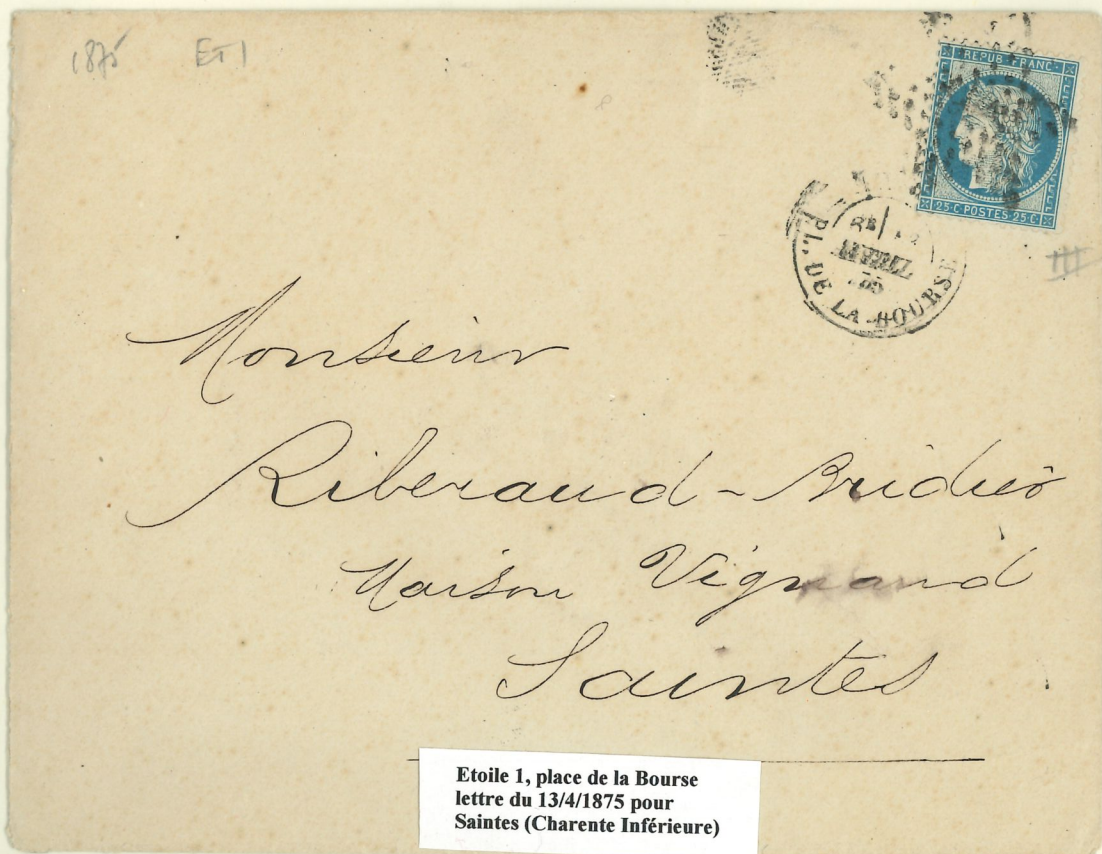 1875 ET 1
REPUB · FRANC
25 · C · POSTES · 25 · C
AVRIL
PL. DE LA BOURSE
Monsieur
Riberaud - Bridier
Maison Vignaud
Saintes
Etoile 1, place de la Bourse
lettre du 13/4/1875 pour
Saintes (Charente Inférieure)